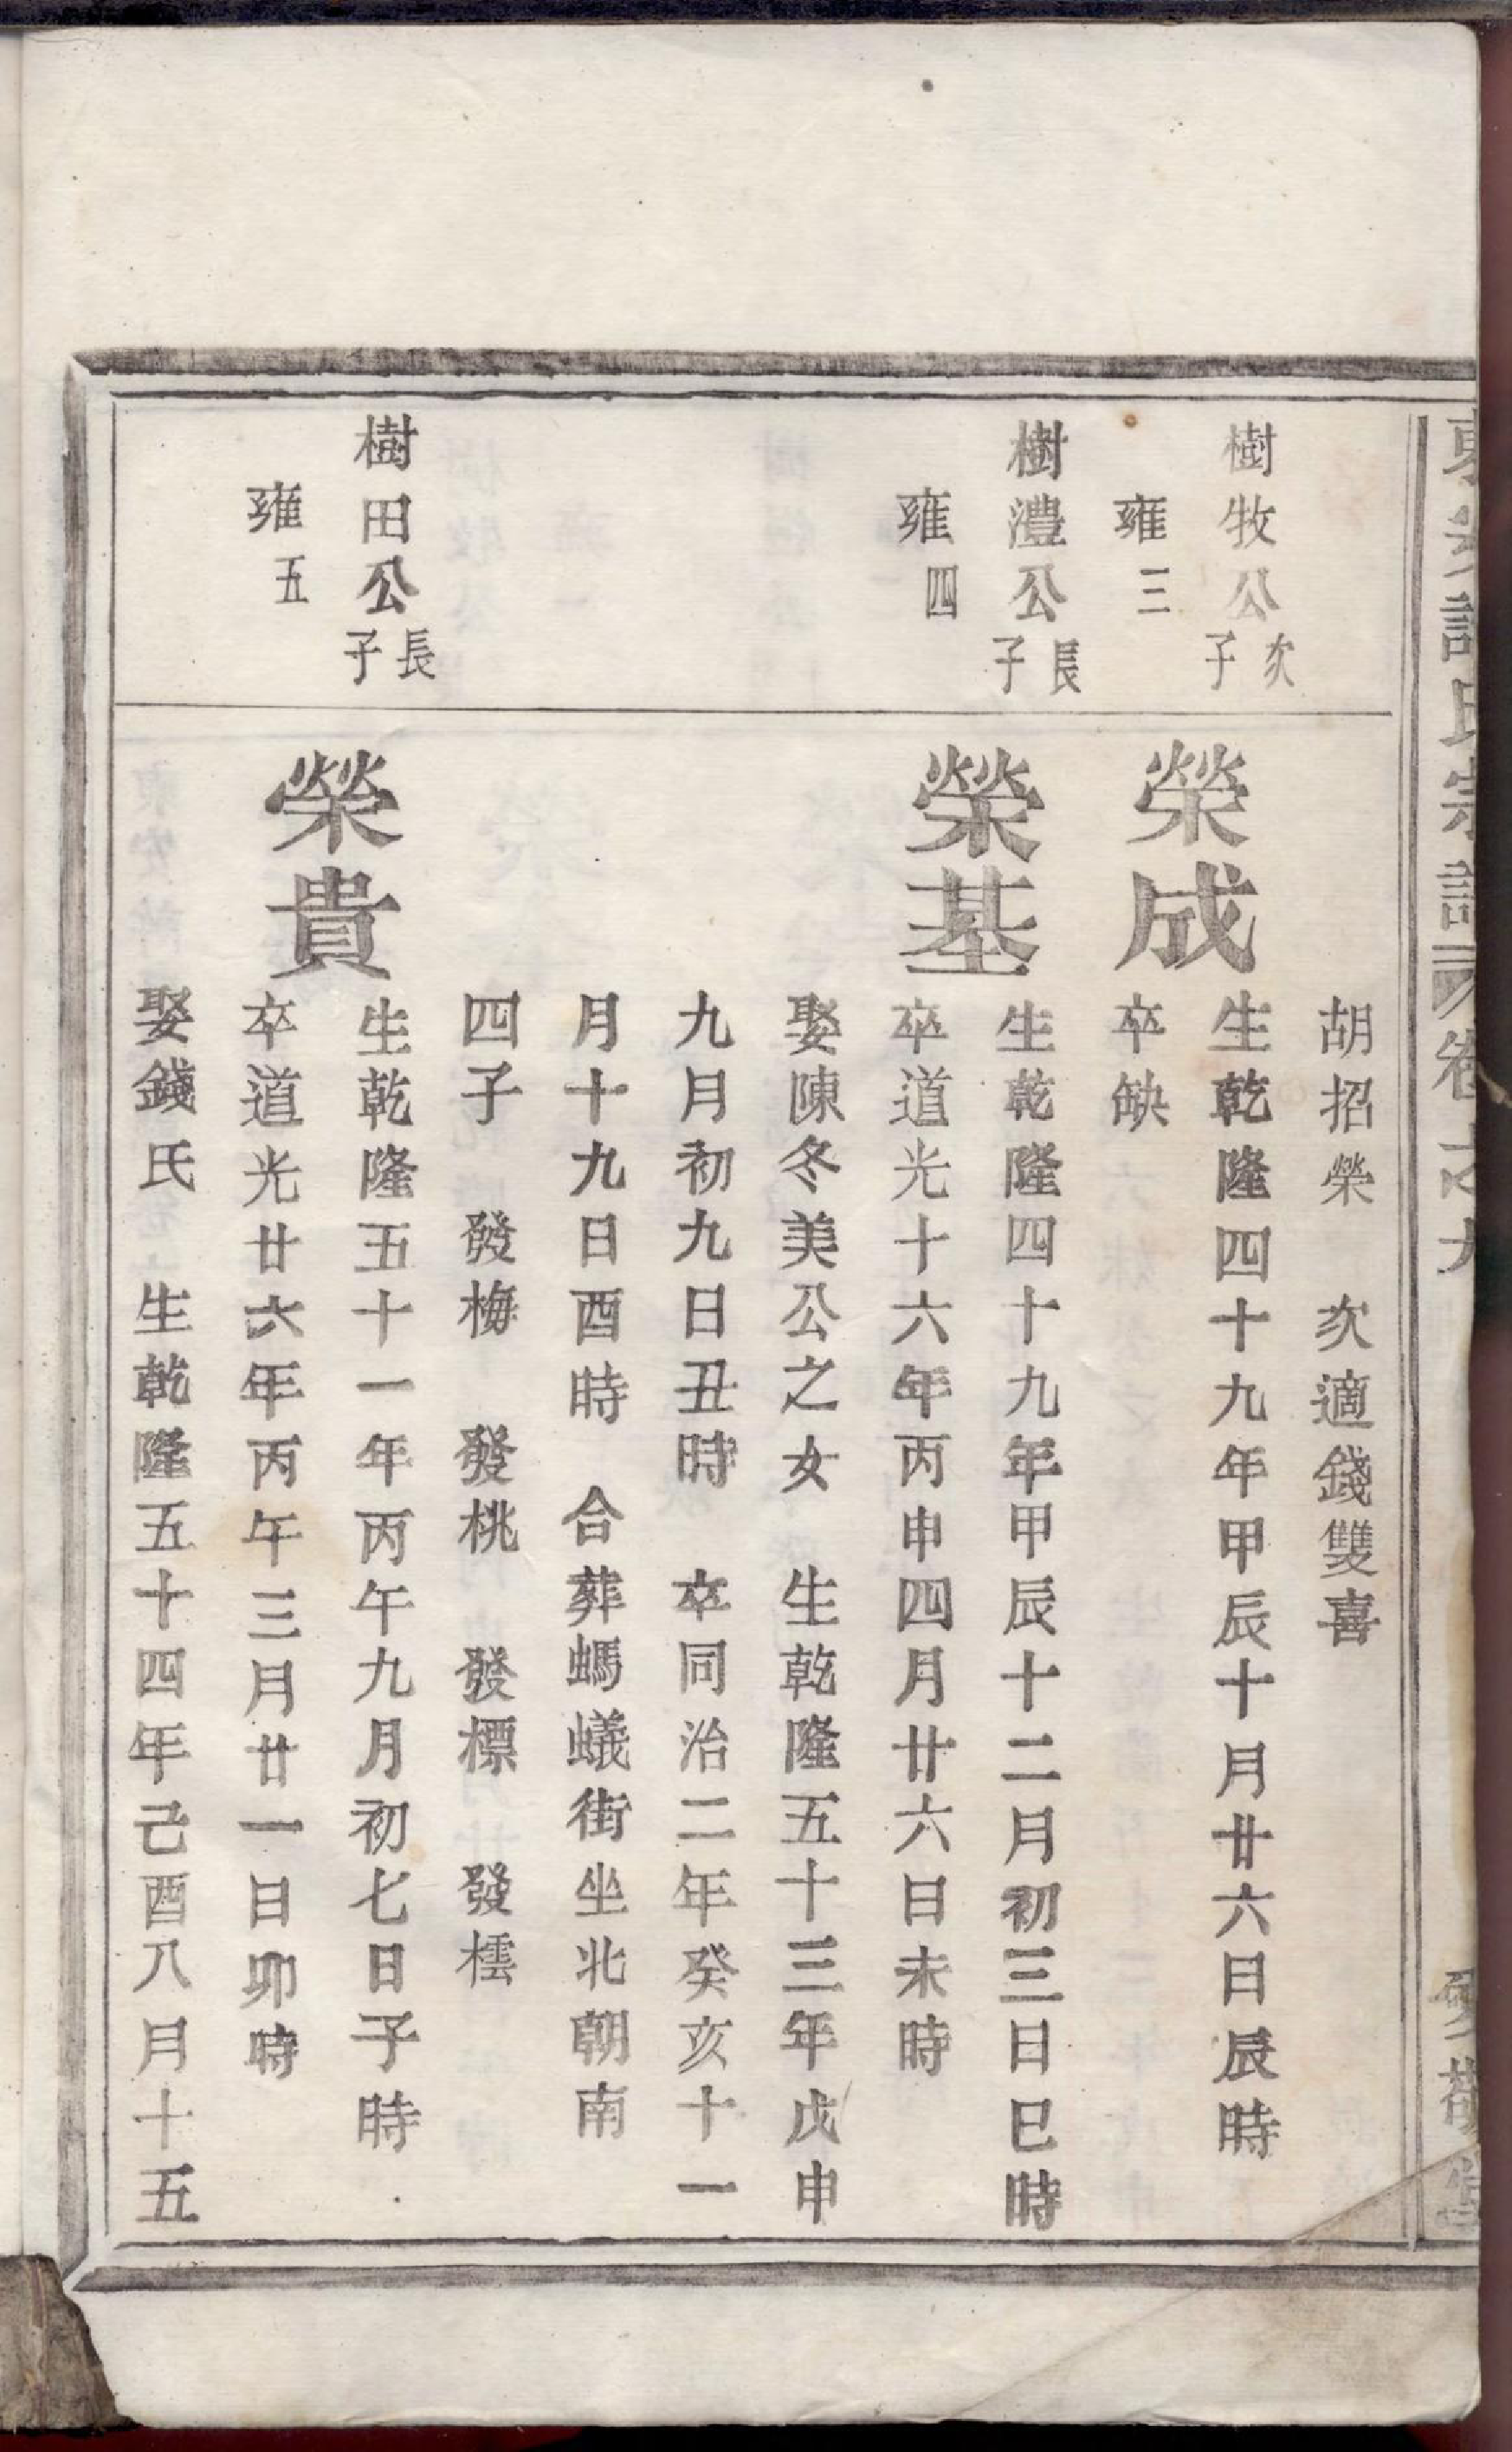 氏宗譜 卷之九
胡招榮 次適錢雙喜
樹牧公次子
雍三
榮成
生乾隆四十九年甲辰十月廿六日辰時
卒缺
樹澧公長子
雍四
榮基
生乾隆四十九年甲辰十二月初三日巳時
卒道光十六年丙申四月廿六日未時
娶陳冬美公之女 生乾隆五十三年戊申
九月初九日丑時 卒同治二年癸亥十一
月十九日酉時 合葬螞蟻街坐北朝南
四子 發梅 發桃 發標 發橒
樹田公長子
雍五
榮貴
生乾隆五十一年丙午九月初七日子時
卒道光廿六年丙午三月廿一日卯時
娶錢氏 生乾隆五十四年己酉八月十五